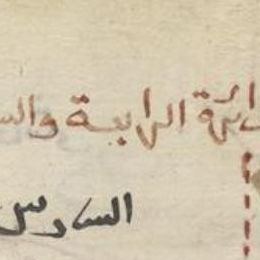 دائرة الرابعة والس
السادس